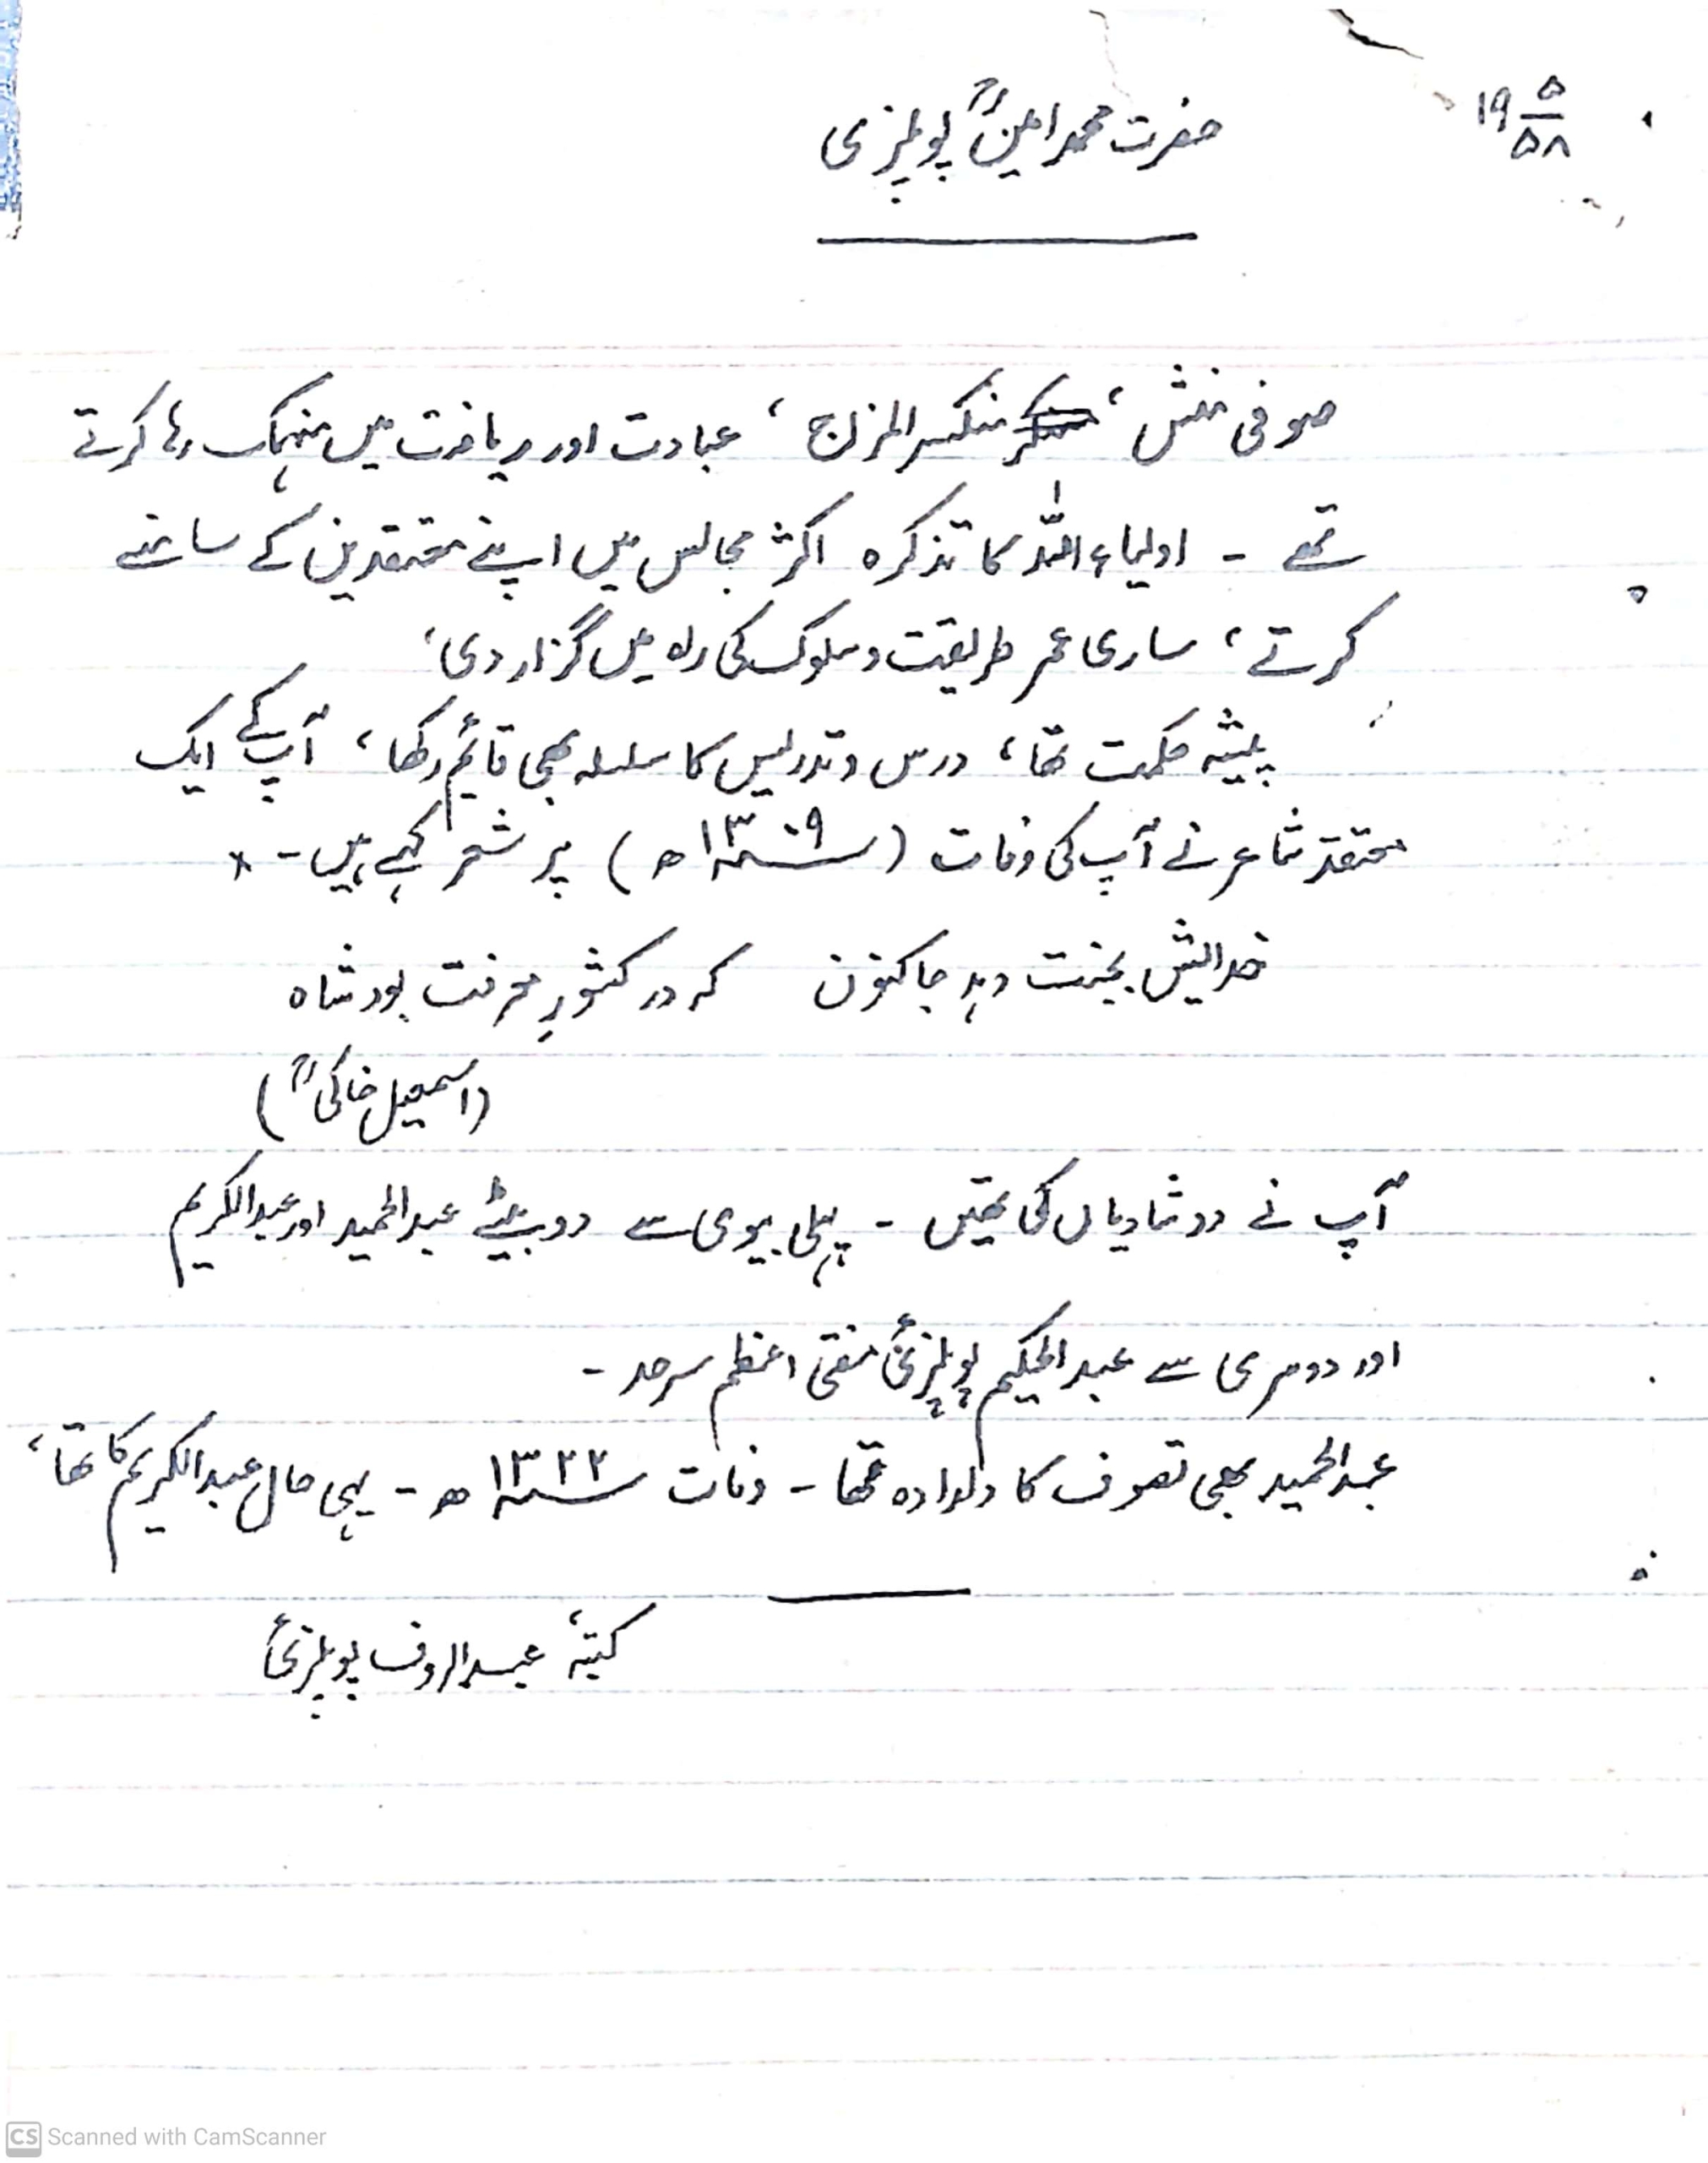 ۱۹ ۵/۵۸
حضرت محمد امینؒ پوپلزی
صوفی منش ، منکسر المزاج ، عبادت اور ریاضت میں منہمک رہا کرتے
تھے ۔ اولیاء اللہ کا تذکرہ اکثر مجالس میں اپنے معتقدین کے سامنے
کرتے ، ساری عمر طریقت و سلوک کی راہ میں گزار دی ،
پیشہ حکمت تھا ، درس و تدریس کا سلسلہ بھی قائم رکھا ، آپ کے ایک
معتقد شاعر نے آپ کی وفات ( ۱۳۰۹ھ ) پر شعر کہے ہیں ۔ *
خدایش بجنت دہد جا کنون که در کشورِ معرفت بود شاہ
(اسمعیل خاکیؒ)
آپ نے دو شادیاں کی تھیں ۔ پہلی بیوی سے دو بیٹے عبدالحمید اور عبدالکریم
اور دوسری سے عبدالحکیم پوپلزئی مفتی اعظم سرحد ۔
عبدالحمید بھی تصوف کا دلدادہ تھا ۔ وفات ۱۳۲۲ھ ۔ یہی حال عبدالکریم کا تھا ،
کتبہٗ عبدالروف پوپلزئی
CS Scanned with CamScanner